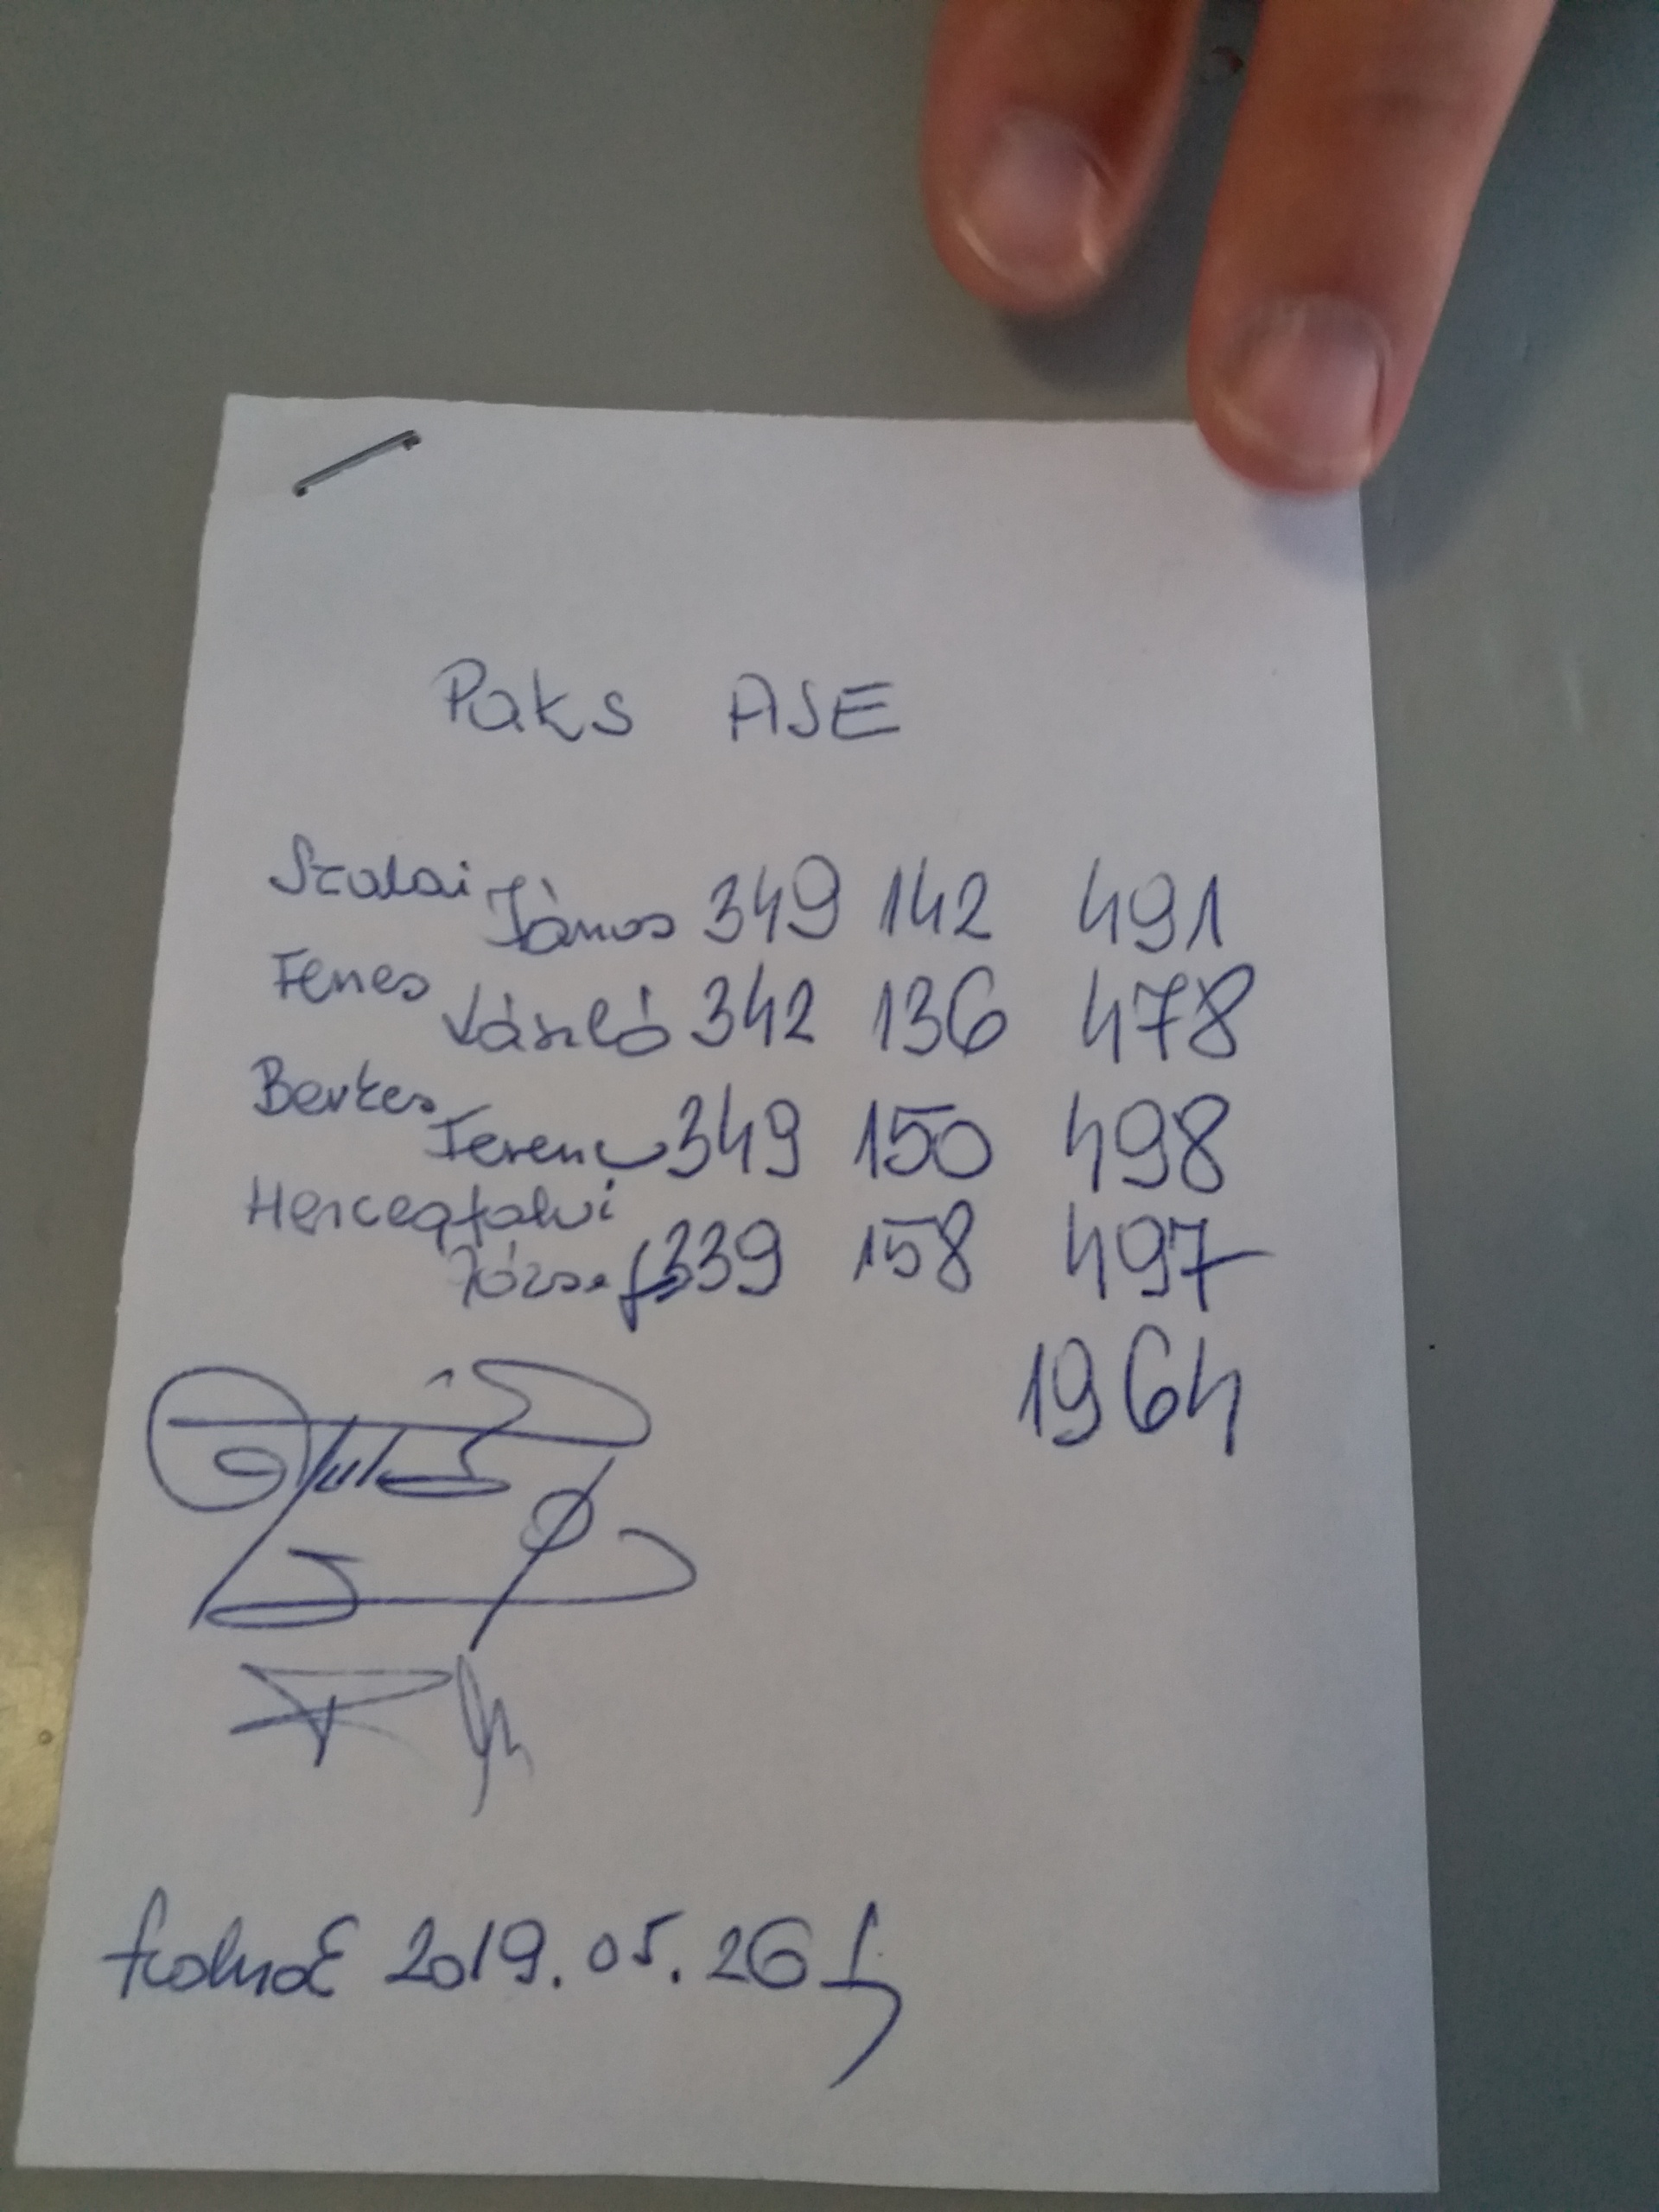 Paks ASE
Szalai
János 349 142 491
Fenes
László 342 136 478
Berkes
Ferenc 349 150 498
Hercegfalvi
József 339 158 497
1964
2019.05.26